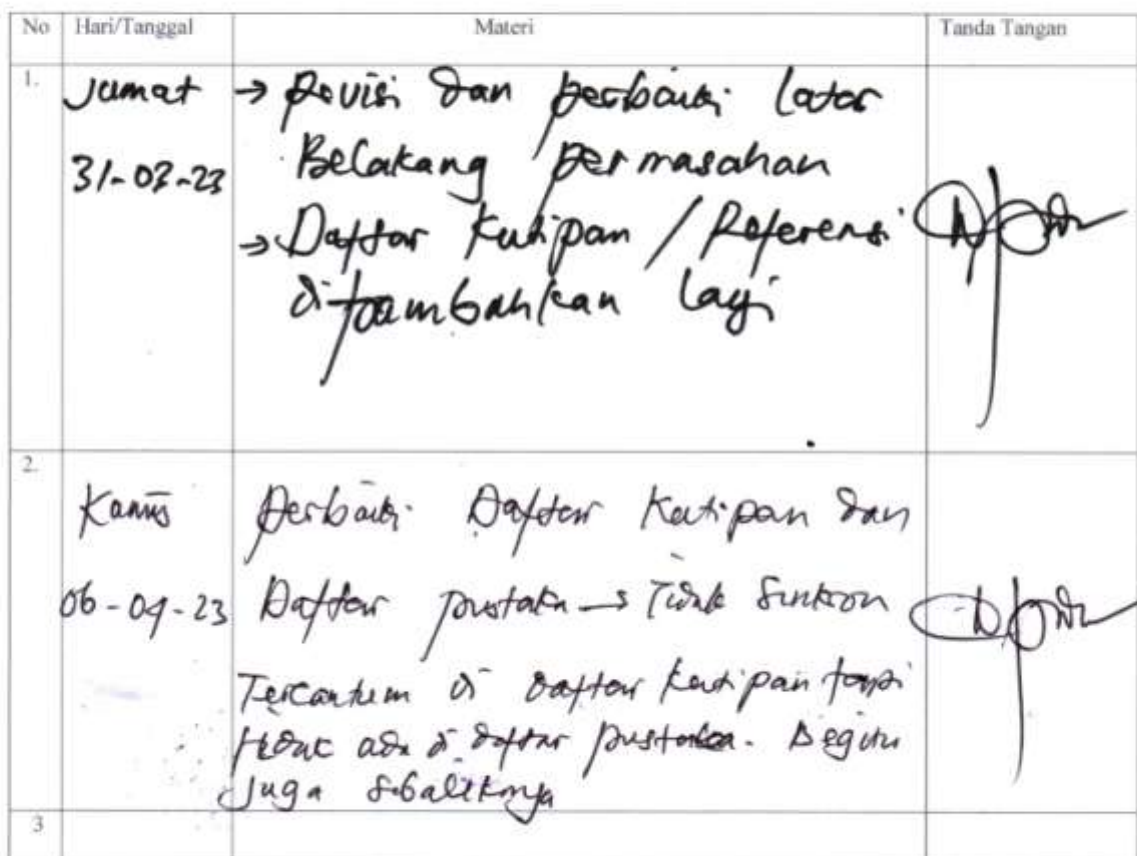 No Hari/Tanggal Materi Tanda Tangan
1. Jumat → Revisi dan perbaiki latar
31-03-23 Belakang permasahan
→ Daftar Kutipan / Referensi
ditambahkan lagi
2.
Kamis Perbaiki Daftar Kutipan dan
06-04-23 Daftar pustaka → Tidak Sinkron
Tercantum di daftar kutipan tapi
tidak ada di daftar pustaka. Begitu
juga sebaliknya
3